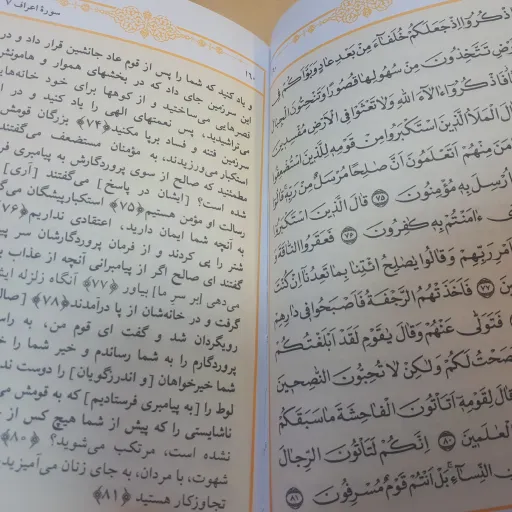 وَاذْكُرُوا إِذْ جَعَلَكُمْ خُلَفَاءَ مِنْ بَعْدِ عَادٍ وَبَوَّأَكُمْ فِي
تَتَّخِذُونَ مِنْ سُهُولِهَا قُصُورًا وَتَنْحِتُونَ الْجِبَالَ
فَاذْكُرُوا آلَاءَ اللَّهِ وَلَا تَعْثَوْا فِي الْأَرْضِ مُفْسِدِينَ
قَالَ الْمَلَأُ الَّذِينَ اسْتَكْبَرُوا مِنْ قَوْمِهِ لِلَّذِينَ اسْتُضْعِفُوا
مِنْهُمْ أَتَعْلَمُونَ أَنَّ صَالِحًا مُرْسَلٌ مِنْ رَبِّهِ قَالُوا
أُرْسِلَ بِهِ مُؤْمِنُونَ ﴿۷۵﴾ قَالَ الَّذِينَ اسْتَكْبَرُوا
آمَنْتُمْ بِهِ كَافِرُونَ ﴿۷۶﴾ فَعَقَرُوا النَّاقَةَ وَ
أَمْرِ رَبِّهِمْ وَقَالُوا يَا صَالِحُ ائْتِنَا بِمَا تَعِدُنَا إِنْ كُنْتَ
﴿۷۷﴾ فَأَخَذَتْهُمُ الرَّجْفَةُ فَأَصْبَحُوا فِي دَارِهِمْ
فَتَوَلَّى عَنْهُمْ وَقَالَ يَا قَوْمِ لَقَدْ أَبْلَغْتُكُمْ
نَصَحْتُ لَكُمْ وَلَكِنْ لَا تُحِبُّونَ النَّاصِحِينَ
قَالَ لِقَوْمِهِ أَتَأْتُونَ الْفَاحِشَةَ مَا سَبَقَكُمْ
الْعَالَمِينَ ﴿۸۰﴾ إِنَّكُمْ لَتَأْتُونَ الرِّجَالَ
النِّسَاءِ بَلْ أَنْتُمْ قَوْمٌ مُسْرِفُونَ ﴿۸۱﴾
سورهٔ اعراف ۷
۱۶۰
و یاد کنید که شما را پس از قوم عاد جانشین قرار داد و در
این سرزمین جای داد که در بخشهای هموار و هامونش
قصرهایی می‌ساختید و از کوهها برای خود خانه‌هایی
می‌تراشیدید، پس نعمتهای الهی را یاد کنید و در این
سرزمین فتنه و فساد برپا مکنید﴿۷۴﴾ بزرگان قومش که
استکبار می‌ورزیدند، به مؤمنان مستضعف می‌گفتند
مطمئنید که صالح از سوی پروردگارش به پیامبری فرستاده
شده است؟ [ایشان در پاسخ] می‌گفتند [آری] ما به
رسالت او مؤمن هستیم﴿۷۵﴾ استکبارپیشگان می‌گفتند
به آنچه شما ایمان دارید، اعتقادی نداریم﴿۷۶﴾
شتر را پی کردند و از فرمان پروردگارشان سر پیچیدند
گفتند ای صالح اگر از پیامبرانی آنچه از عذاب به ما
می‌دهی [بر سر ما] بیاور ﴿۷۷﴾ آنگاه زلزله ایشان را
گرفت و در خانه‌شان از پا درآمدند﴿۷۸﴾ [صالح]
رویگردان شد و گفت ای قوم من، به راستی
پروردگارم را به شما رساندم و خیر شما را خواستم
شما خیرخواهان [و اندرزگویان] را دوست ندارید
لوط را [به پیامبری فرستادیم] که به قومش می‌گفت
ناشایستی را که پیش از شما هیچ کس از
نشده است، مرتکب می‌شوید؟ ﴿۸۰﴾
شهوت، با مردان، به جای زنان می‌آمیزید
تجاوزکار هستید ﴿۸۱﴾